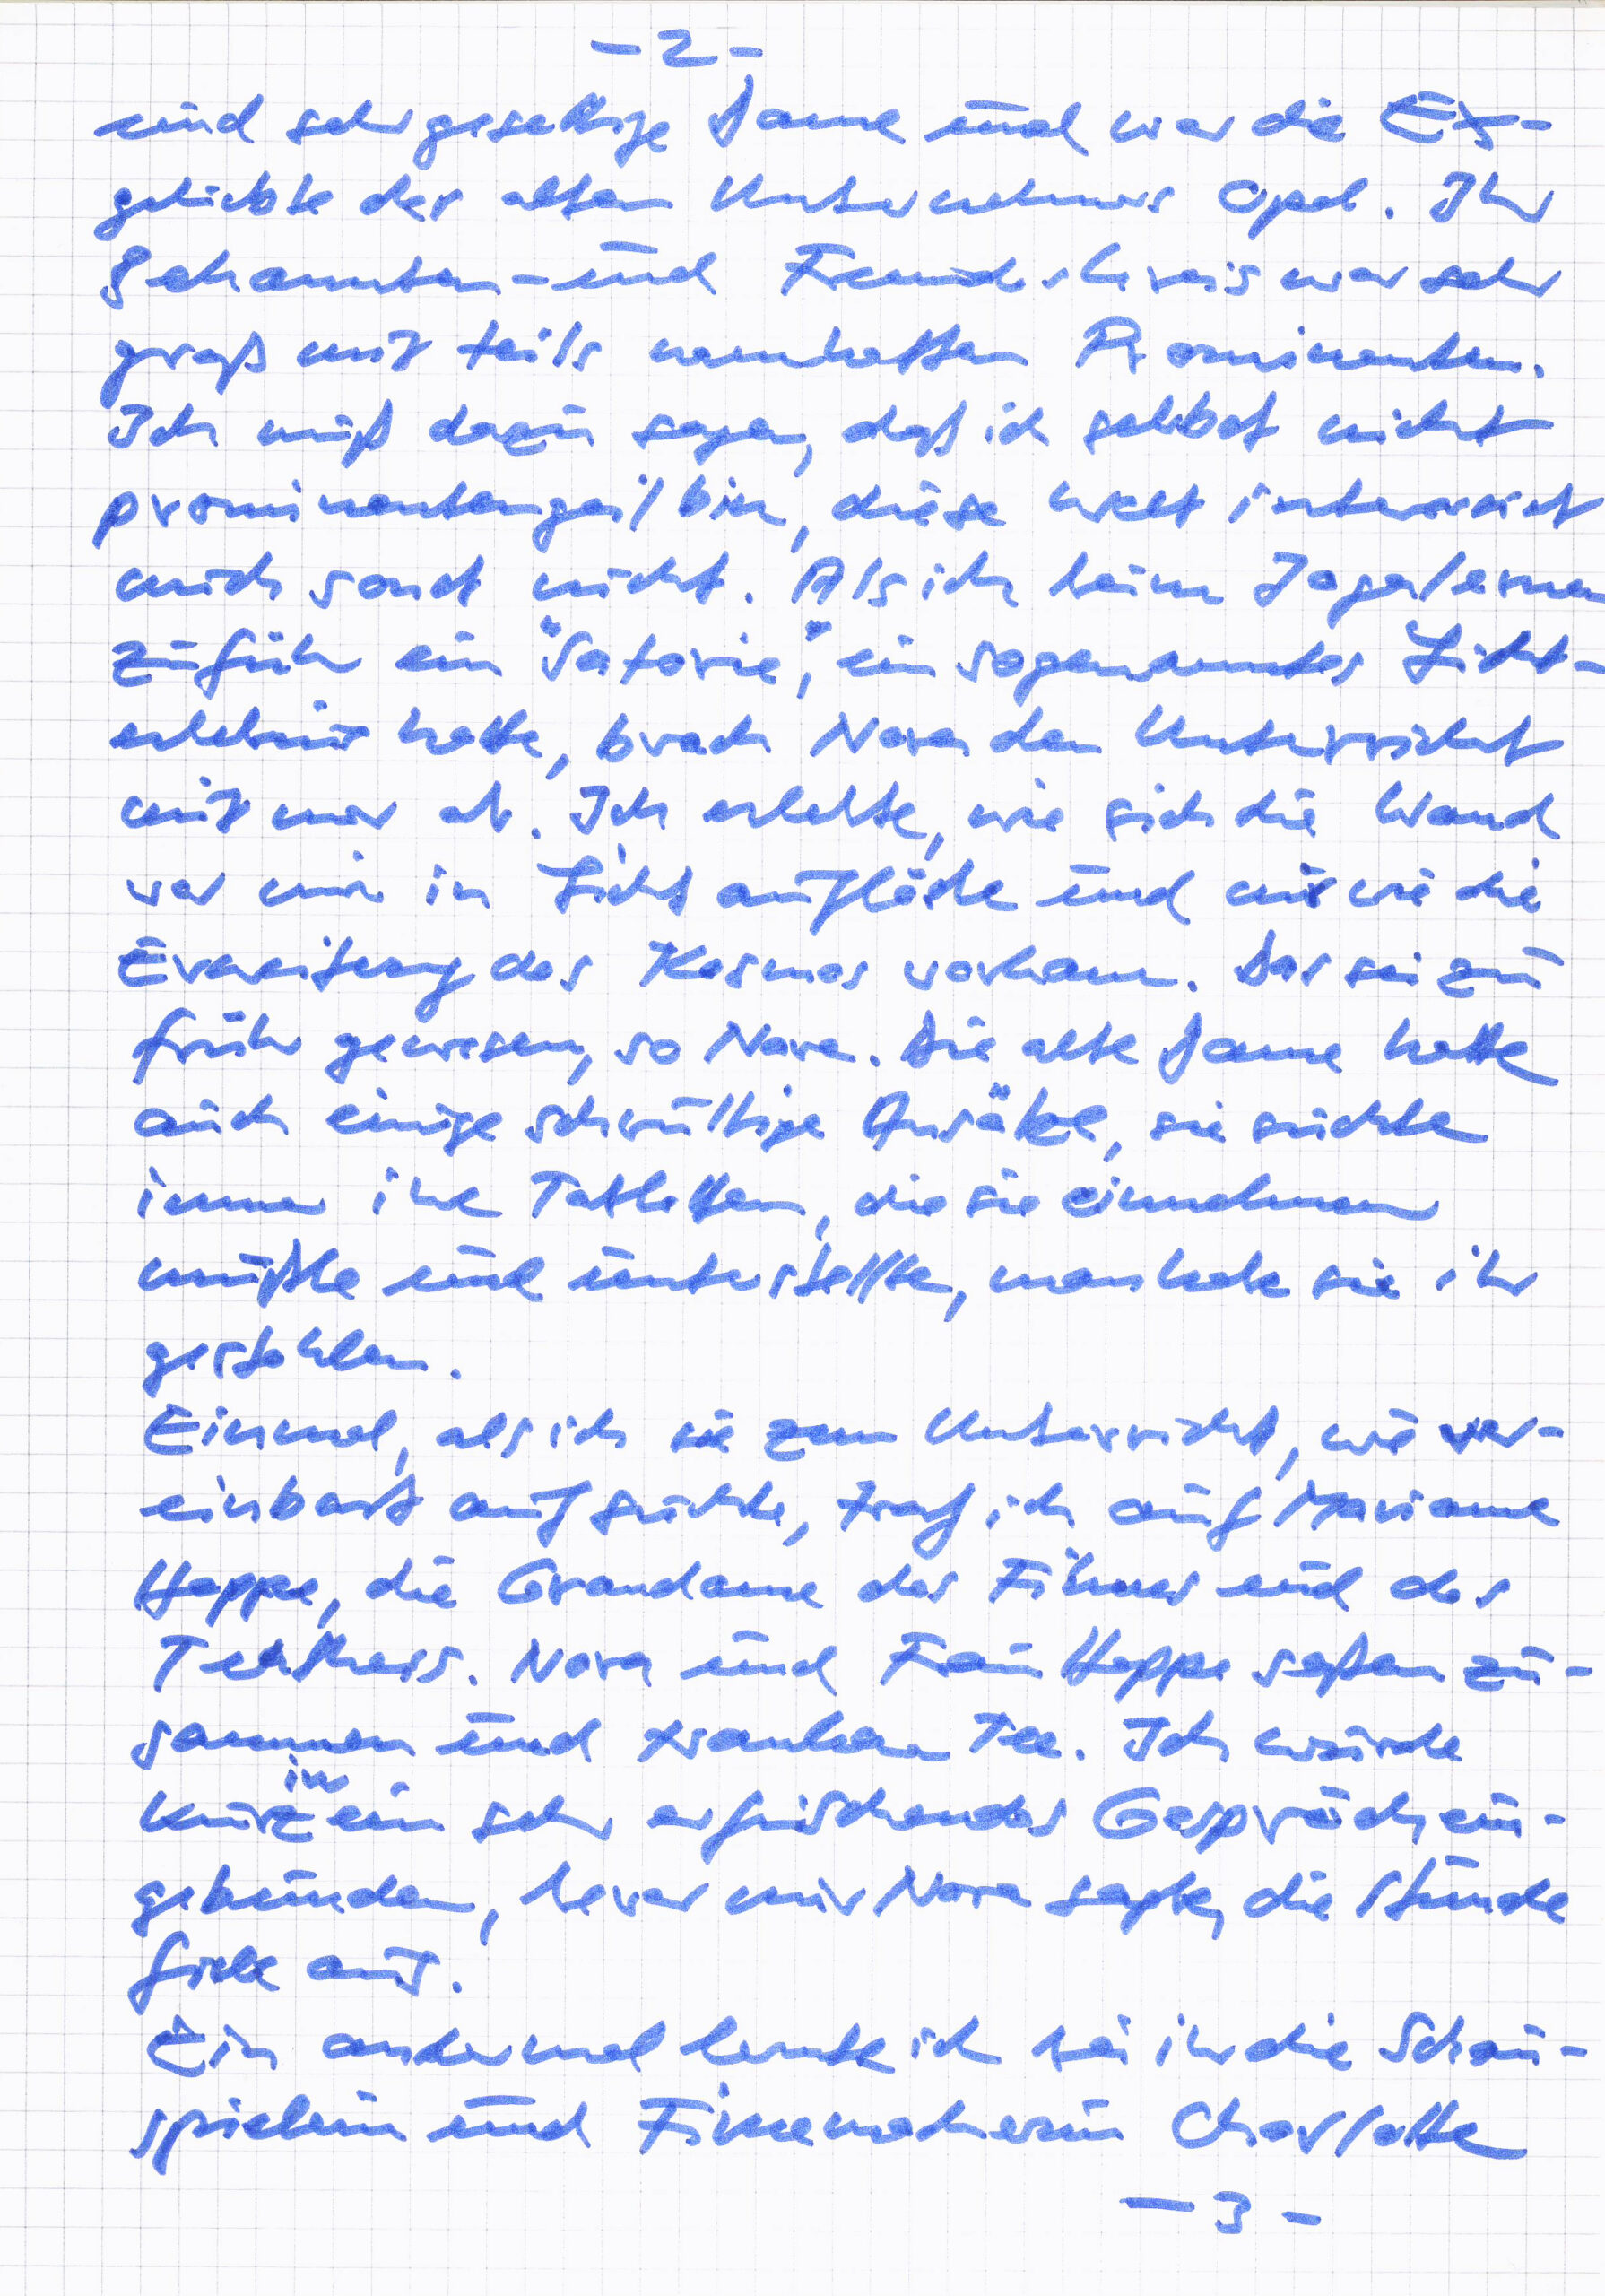 - 2 -
und sehr gesellige Dame und war die Ex-
geliebte des alten Unternehmers Opel. Ihr
Bekannten- und Freundeskreis war sehr
groß mit teils namhaften Prominenten.
Ich muß dazu sagen, daß ich selbst nicht
prominentengeil bin, diese Welt interessiert
mich sonst nicht. Als ich beim Yogalernen
zu früh ein "Satorie", ein sogenanntes Licht-
erlebnis hatte, brach Nora den Unterricht
mit mir ab. Ich erlebte, wie sich die Wand
vor mir in Licht auflöste und mir wie die
Erweiterung des Kosmos vorkam. Das sei zu
früh gewesen, so Nora. Die alte Dame hatte
auch einige schrullige Ansätze, sie suchte
immer ihre Tabletten, die sie einnehmen
mußte und unterstellte, man habe sie ihr
gestohlen.
Einmal, als ich sie zum Unterricht, wie ver-
einbart aufsuchte, traf ich auf Marianne
Hoppe, die Grandame des Filmes und des
Theaters. Nora und Frau Hoppe saßen zu-
sammen und tranken Tee. Ich wurde
kurz in ein sehr erfrischendes Gespräch ein-
gebunden, bevor mir Nora sagte, die Stunde
fiele aus.
Ein andermal lernte ich bei ihr die Schau-
spielerin und Filmemacherin Charlotte
- 3 -